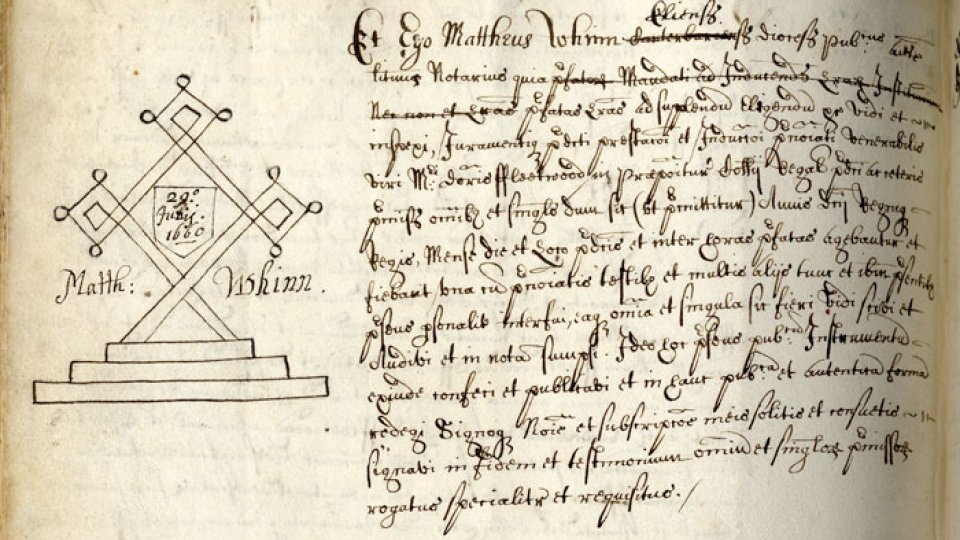 29.º
Junij.
1660
Matth: Whinn.
Eliensß
Et Ego Mattheus Whinn dioceß Pub:cus aucte
litimus Notarius quia Mandati ad Inducendũ
Nec non et p̃fatas ad supplendũ Eligendũ vidi et
inspexi, Juramentiq p̃dti prestacioi et Inductioi p̃noiati venerabilis
viri Mri. dcoris ffleetwood in Præpositur Collij Regal p̃dti ac ceteris
p̃miss omib; et singlis dum sic (ut p̃mittitur) Annis Dni Regnoq
Regis, Mense die et Loco p̃dtis et inter horas p̃fatas agebantur et
fiebant una cũ p̃noiatis testib; et multis alijs tunc et ibm p̃sentib;
p̃sens p̃sonalit interfui, eaq omia et singula sic fieri vidi scivi et
Audivi et in notam sumpsi. Ideo hoc p̃sens pub:cum Instrumentũ
exinde confeci et publicavi et in hanc pub:cam et autenticã formã
redegi Signoq Noie et subscripcõe meis solitis et consuetis
signavi in fidem et testimonium omniũ et singlor p̃missor
rogatus specialitr et requisitus./